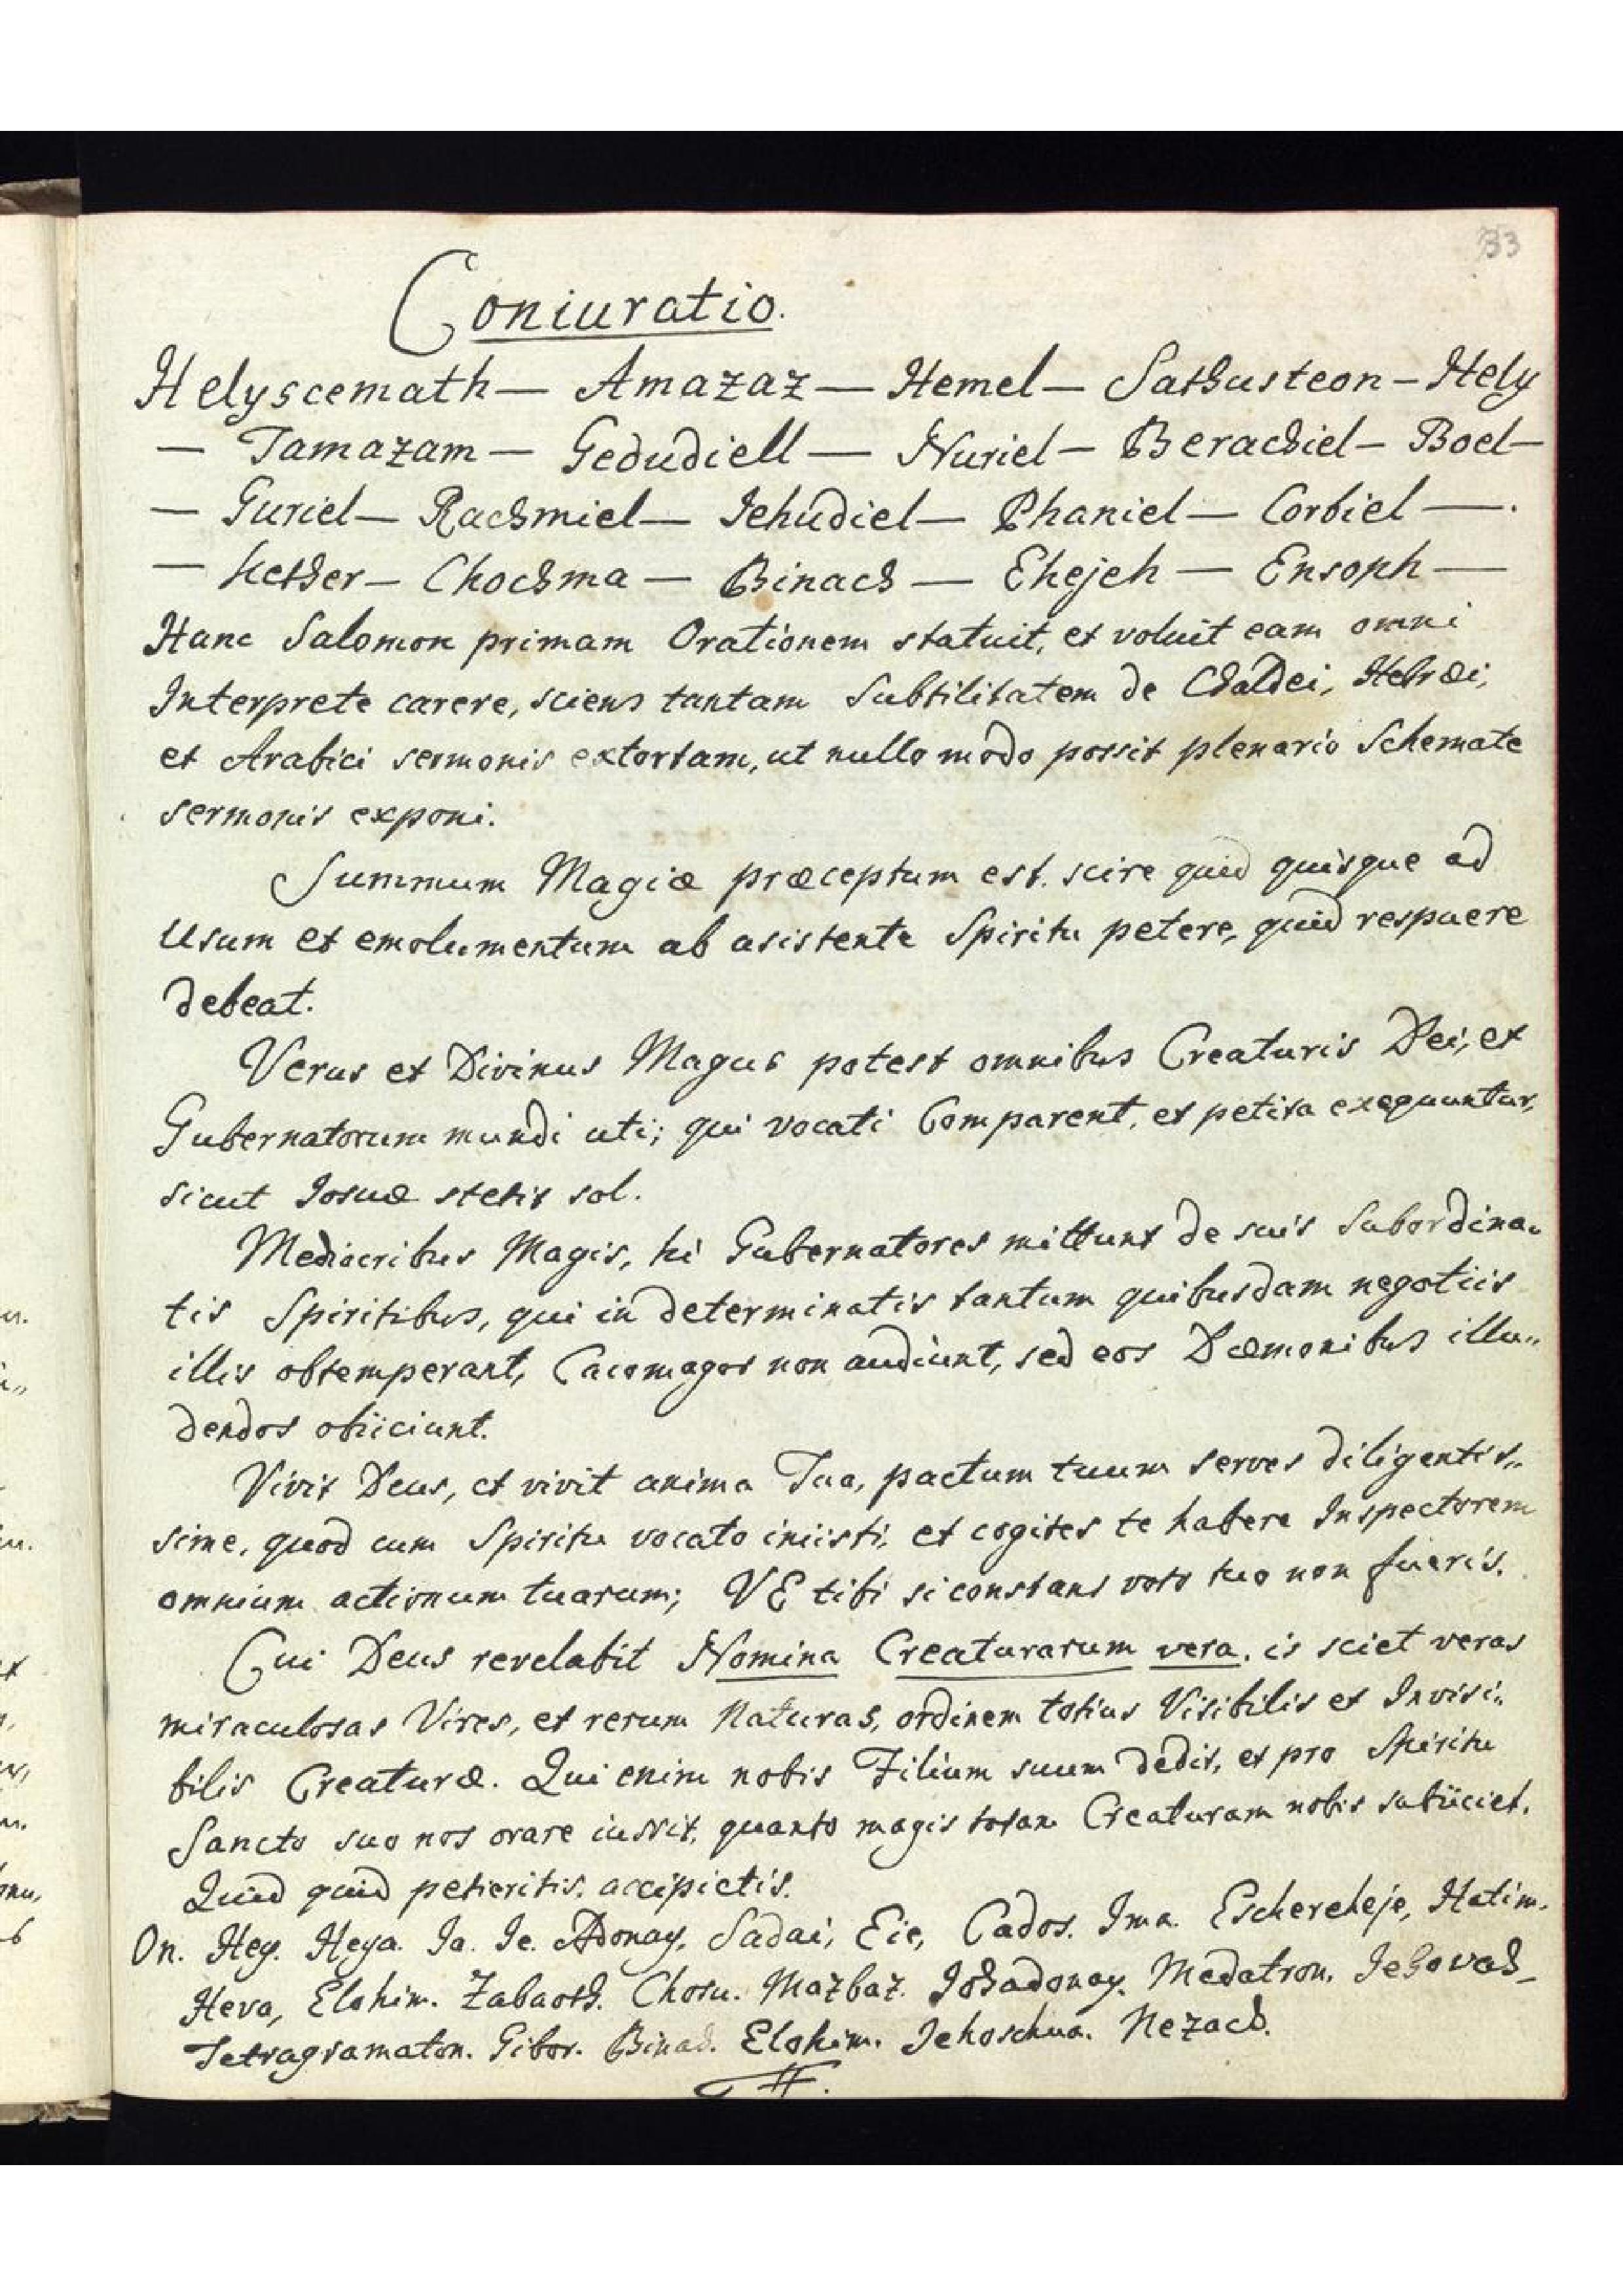 33
Coniuratio.
Helyscemath — Amazaz — Hemel — Sathusteon — Hely
— Tamazam — Gedudiell — Nuriel — Berachiel — Boel —
— Guriel — Rachmiel — Iehudiel — Phaniel — Corbiel — .
— Kether — Chochma — Binach — Ehejeh — Ensoph —
Hanc Salomon primam Orationem statuit, et voluit eam omni
Interprete carere, sciens tantam Subtilitatem de Chaldei, Hebræi,
et Arabici sermonis extortam, ut nullo modo possit plenario Schemate
sermonis exponi.
Summum Magiæ præceptum est. scire quid quisque ad
Usum et emolumentum ab asistente Spiritu petere, quid respuere
debeat.
Verus et Divinus Magus potest omnibus Creaturis Dei, et
Gubernatorum mundi uti; qui vocati Comparent, et petita exequuntur,
sicut Iosuæ stetit sol.
Mediocribus Magis, hi Gubernatores mittunt de suis Subordina„
tis Spiritibus, qui in determinatis tantum quibusdam negotiis
illis obtemperant, Cacomagos non audiunt, sed eos Dæmonibus illu„
dendos obiiciunt.
Vivit Deus, et vivit anima Tua, pactum tuum serves diligentis„
sime, quod cum Spiritu vocato iniisti, et cogites te habere Inspectorem
omnium actionum tuarum; VE tibi si constans voto tuo non fueris.
Cui Deus revelabit Nomina Creaturarum vera, is sciet veras
miraculosas Vires, et rerum Naturas, ordinem totius Visibilis et Invisi„
bilis Creaturæ. Qui enim nobis Filium suum dedit, et pro Spiritu
Sancto suo nos orare iussit, quanto magis totam Creaturam nobis subiiciet.
Quid quid petieritis, accipietis.
On. Hey. Heya. Ia. Ie. Adonay, Sadai, Eie, Cados. Ima. Eschereheje, Hatim.
Heva, Elohim. Zabaoth. Chosu. Mazbaz. Iohadonay. Medatron. Iehovah_
Tetragramaton. Gibor. Binah. Elohim. Iehoschua. Nezach.